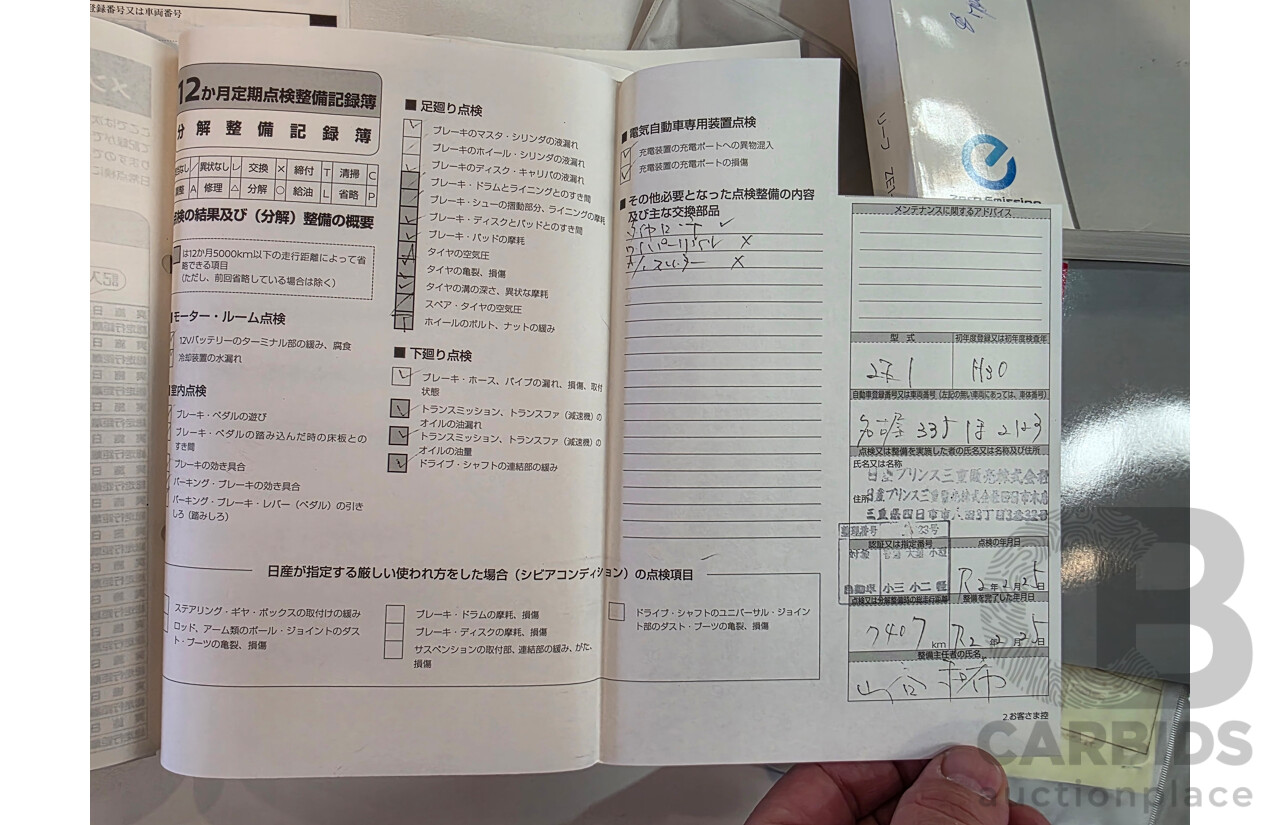 登録番号又は車両番号
12か月定期点検整備記録簿
分解整備記録簿
異状なし レ 交換 × 締付 T 清掃 C
A 修理 △ 分解 ○ 給油 L 省略 P
点検の結果及び（分解）整備の概要
は12か月5000km以下の走行距離によって省
略できる項目
（ただし、前回省略している場合は除く）
モーター・ルーム点検
12Vバッテリーのターミナル部の緩み、腐食
冷却装置の水漏れ
室内点検
ブレーキ・ペダルの遊び
ブレーキ・ペダルの踏み込んだ時の床板との
すき間
ブレーキの効き具合
パーキング・ブレーキの効き具合
パーキング・ブレーキ・レバー（ペダル）の引き
しろ（踏みしろ）
■ 足廻り点検
ブレーキのマスタ・シリンダの液漏れ
ブレーキのホイール・シリンダの液漏れ
ブレーキのディスク・キャリパの液漏れ
ブレーキ・ドラムとライニングとのすき間
ブレーキ・シューの摺動部分、ライニングの摩耗
ブレーキ・ディスクとパッドとのすき間
ブレーキ・パッドの摩耗
タイヤの空気圧
タイヤの亀裂、損傷
タイヤの溝の深さ、異状な摩耗
スペア・タイヤの空気圧
ホイールのボルト、ナットの緩み
■ 下廻り点検
ブレーキ・ホース、パイプの漏れ、損傷、取付
状態
トランスミッション、トランスファ（減速機）の
オイルの油漏れ
トランスミッション、トランスファ（減速機）の
オイルの油量
ドライブ・シャフトの連結部の緩み
■ 電気自動車専用装置点検
充電装置の充電ポートへの異物混入
充電装置の充電ポートの損傷
■ その他必要となった点検整備の内容
及び主な交換部品
日産が指定する厳しい使われ方をした場合（シビアコンディション）の点検項目
ステアリング・ギヤ・ボックスの取付けの緩み
ロッド、アーム類のボール・ジョイントのダス
ト・ブーツの亀裂、損傷
ブレーキ・ドラムの摩耗、損傷
ブレーキ・ディスクの摩耗、損傷
サスペンションの取付部、連結部の緩み、がた、
損傷
ドライブ・シャフトのユニバーサル・ジョイン
ト部のダスト・ブーツの亀裂、損傷
メンテナンスに関するアドバイス
型式 初年度登録又は初年度検査年
ZE1 H30
自動車登録番号又は車両番号（左記の無い車両にあっては、車体番号）
名古屋 335 ほ 2123
点検又は整備を実施した者の氏名又は名称及び住所
氏名又は名称
日産プリンス三重販売株式会社
住所
日産プリンス三重販売株式会社四日市本店
認証又は指定番号 点検の年月日
R2年2月25日
点検又は分解整備時の総走行距離 整備を完了した年月日
7407 km R2年2月25日
整備主任者の氏名
2.お客さま控
リーフ
Zero Emission
CARBIDS
auctionplace